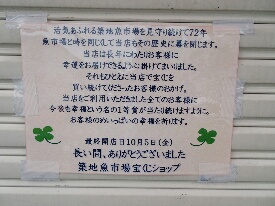 活気あふれる築地魚市場を見守り続けて72年
魚市場と時を同じくして当店もその歴史に幕を閉じます。
当店は長年にわたりお客様に
幸運をお届けできるように掛けてまいりました。
それもひとえに当店で宝くじを
買い続けてくださったお客様のおかげ。
当店をご利用いただきました全てのお客様に
今後も幸福という名の1等賞が当たり続けますように。
お客様のめいっぱいの幸福を祈ります。
最終開店日10月5日(金)
長い間、ありがとうございました
築地魚市場宝くじショップ